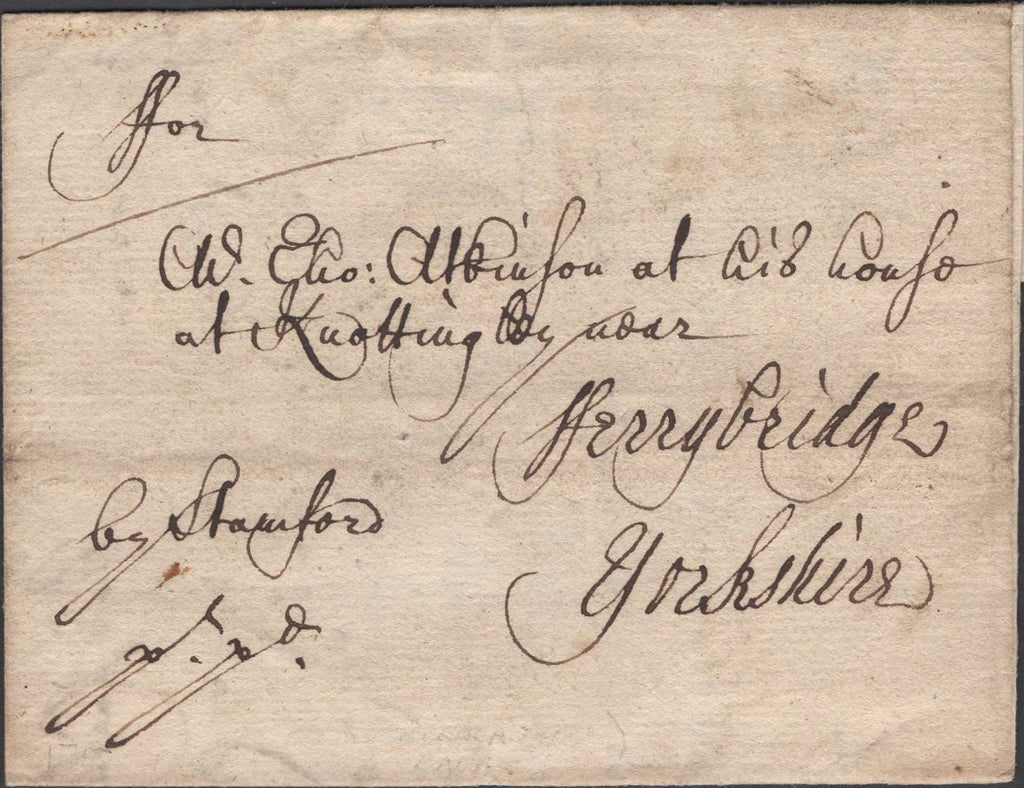 ffor
Mr. Tho: Atkinson at his house
at Knottingley near
fferrybridge
by Stamford
Yorkshire
pt. pd.